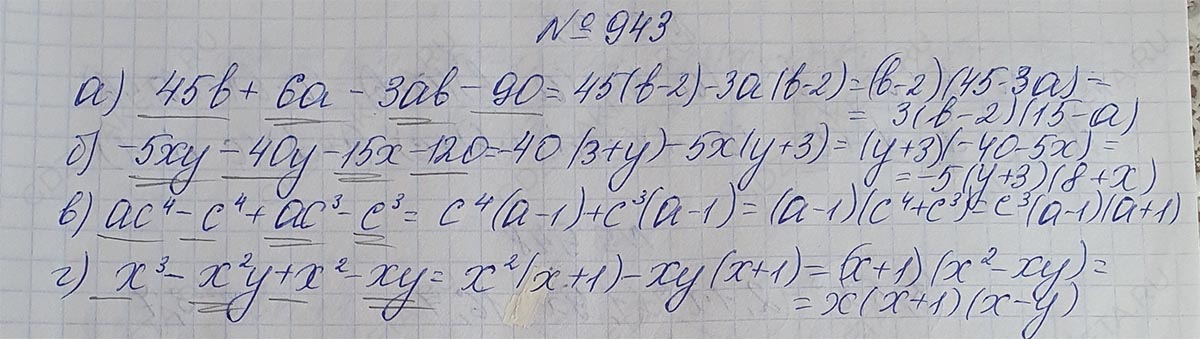 № 943
а) 45b + 6a - 3ab - 90 = 45(b-2) - 3a(b-2) = (b-2)(45-3a) =
= 3(b-2)(15-a)
б) -5xy - 40y - 15x - 120 = -40(3+y) - 5x(y+3) = (y+3)(-40-5x) =
= -5(y+3)(8+x)
в) ac⁴ - c⁴ + ac³ - c³ = c⁴(a-1) + c³(a-1) = (a-1)(c⁴+c³) = c³(a-1)(a+1)
г) x³ - x²y + x² - xy = x²(x+1) - xy(x+1) = (x+1)(x²-xy) =
= x(x+1)(x-y)